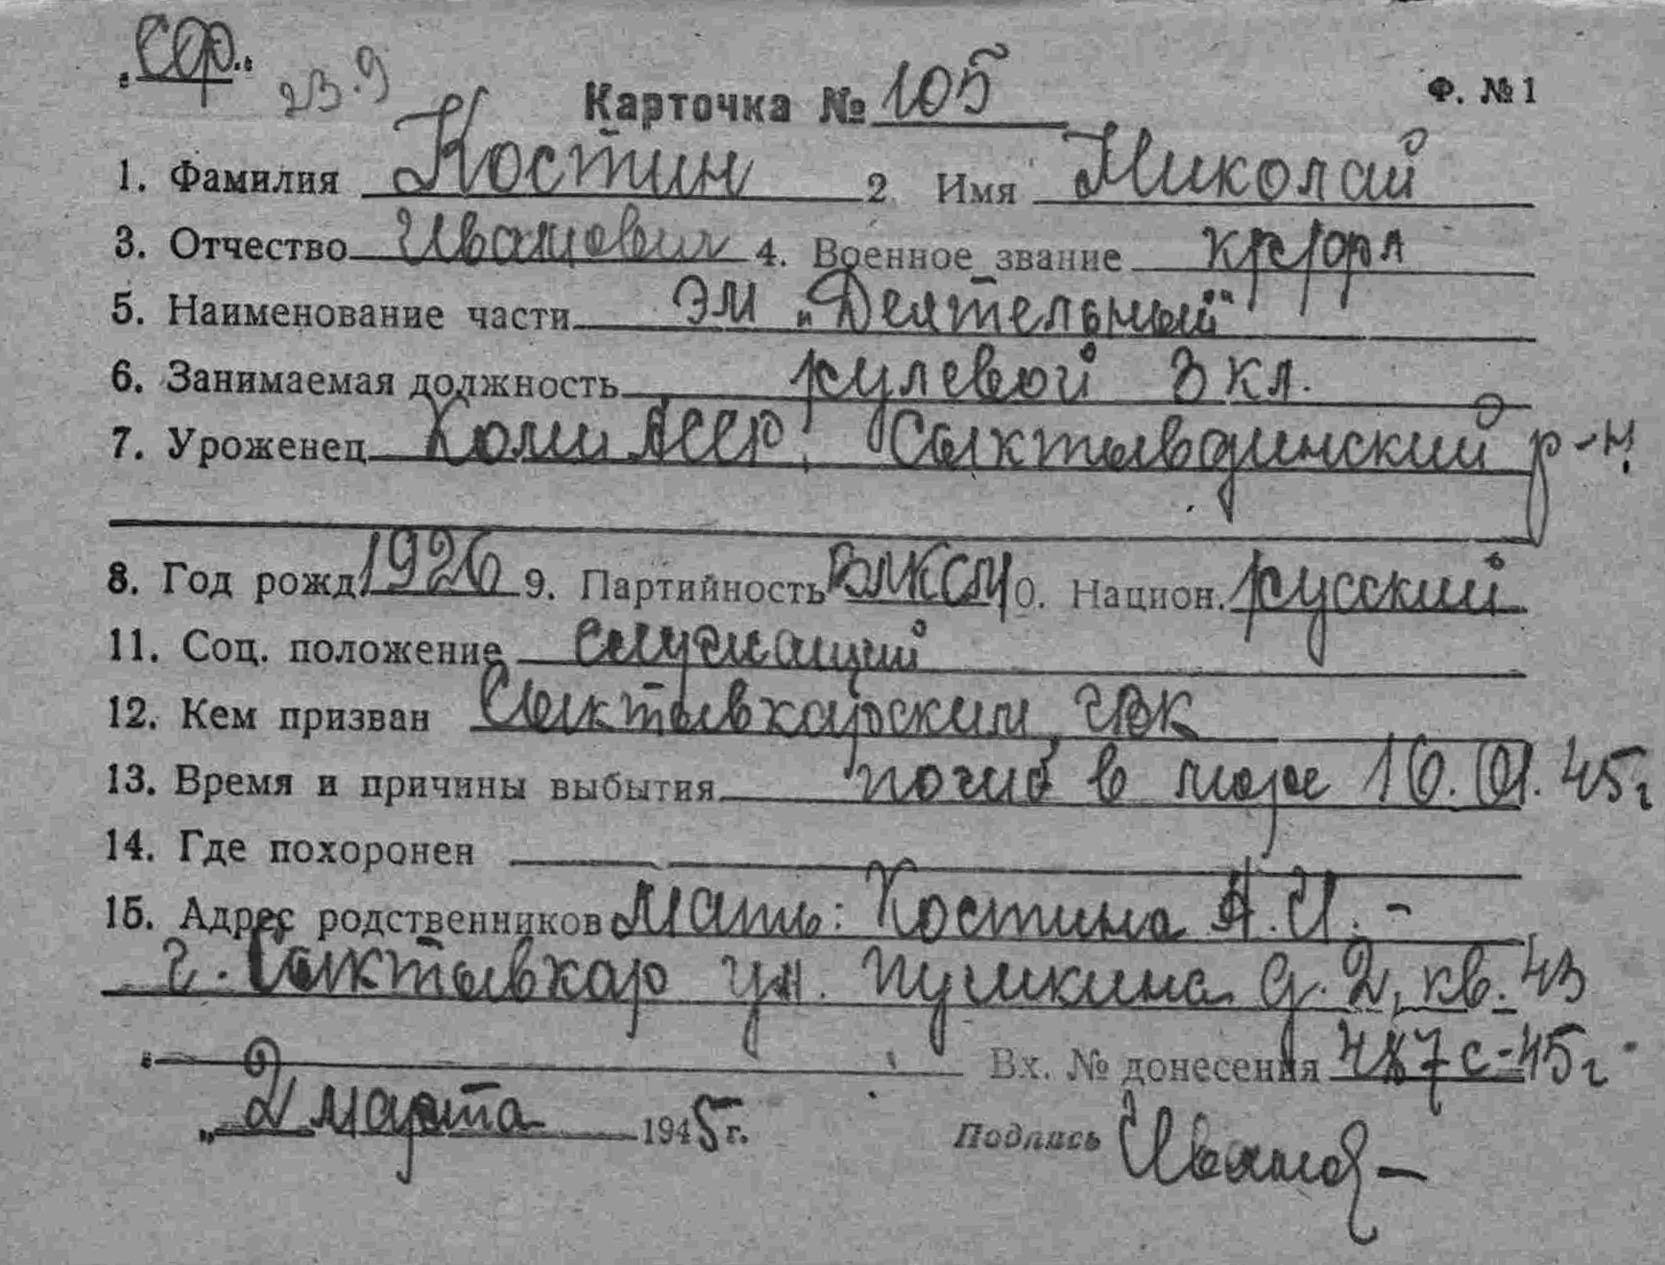 „СФ“ 23.9
Карточка № 105 Ф. № 1
1. Фамилия Костин 2. Имя Николай
3. Отчество Иванович 4. Военное звание кр/фл
5. Наименование части ЭМ „Деятельный“
6. Занимаемая должность рулевой 3 кл.
7. Уроженец Коми АССР, Сыктывдинский р-н.
8. Год рожд. 1926 9. Партийность ВЛКСМ 10. Национ. русский
11. Соц. положение служащий
12. Кем призван Сыктывкарским ГВК
13. Время и причины выбытия погиб в море 16.01.45г
14. Где похоронен
15. Адрес родственников Мать: Костина А.И. -
г. Сыктывкар ул. Пушкина д. 2, кв. 43
Вх. № донесения с-45г
„2 марта 1945 г. Подпись Иванов